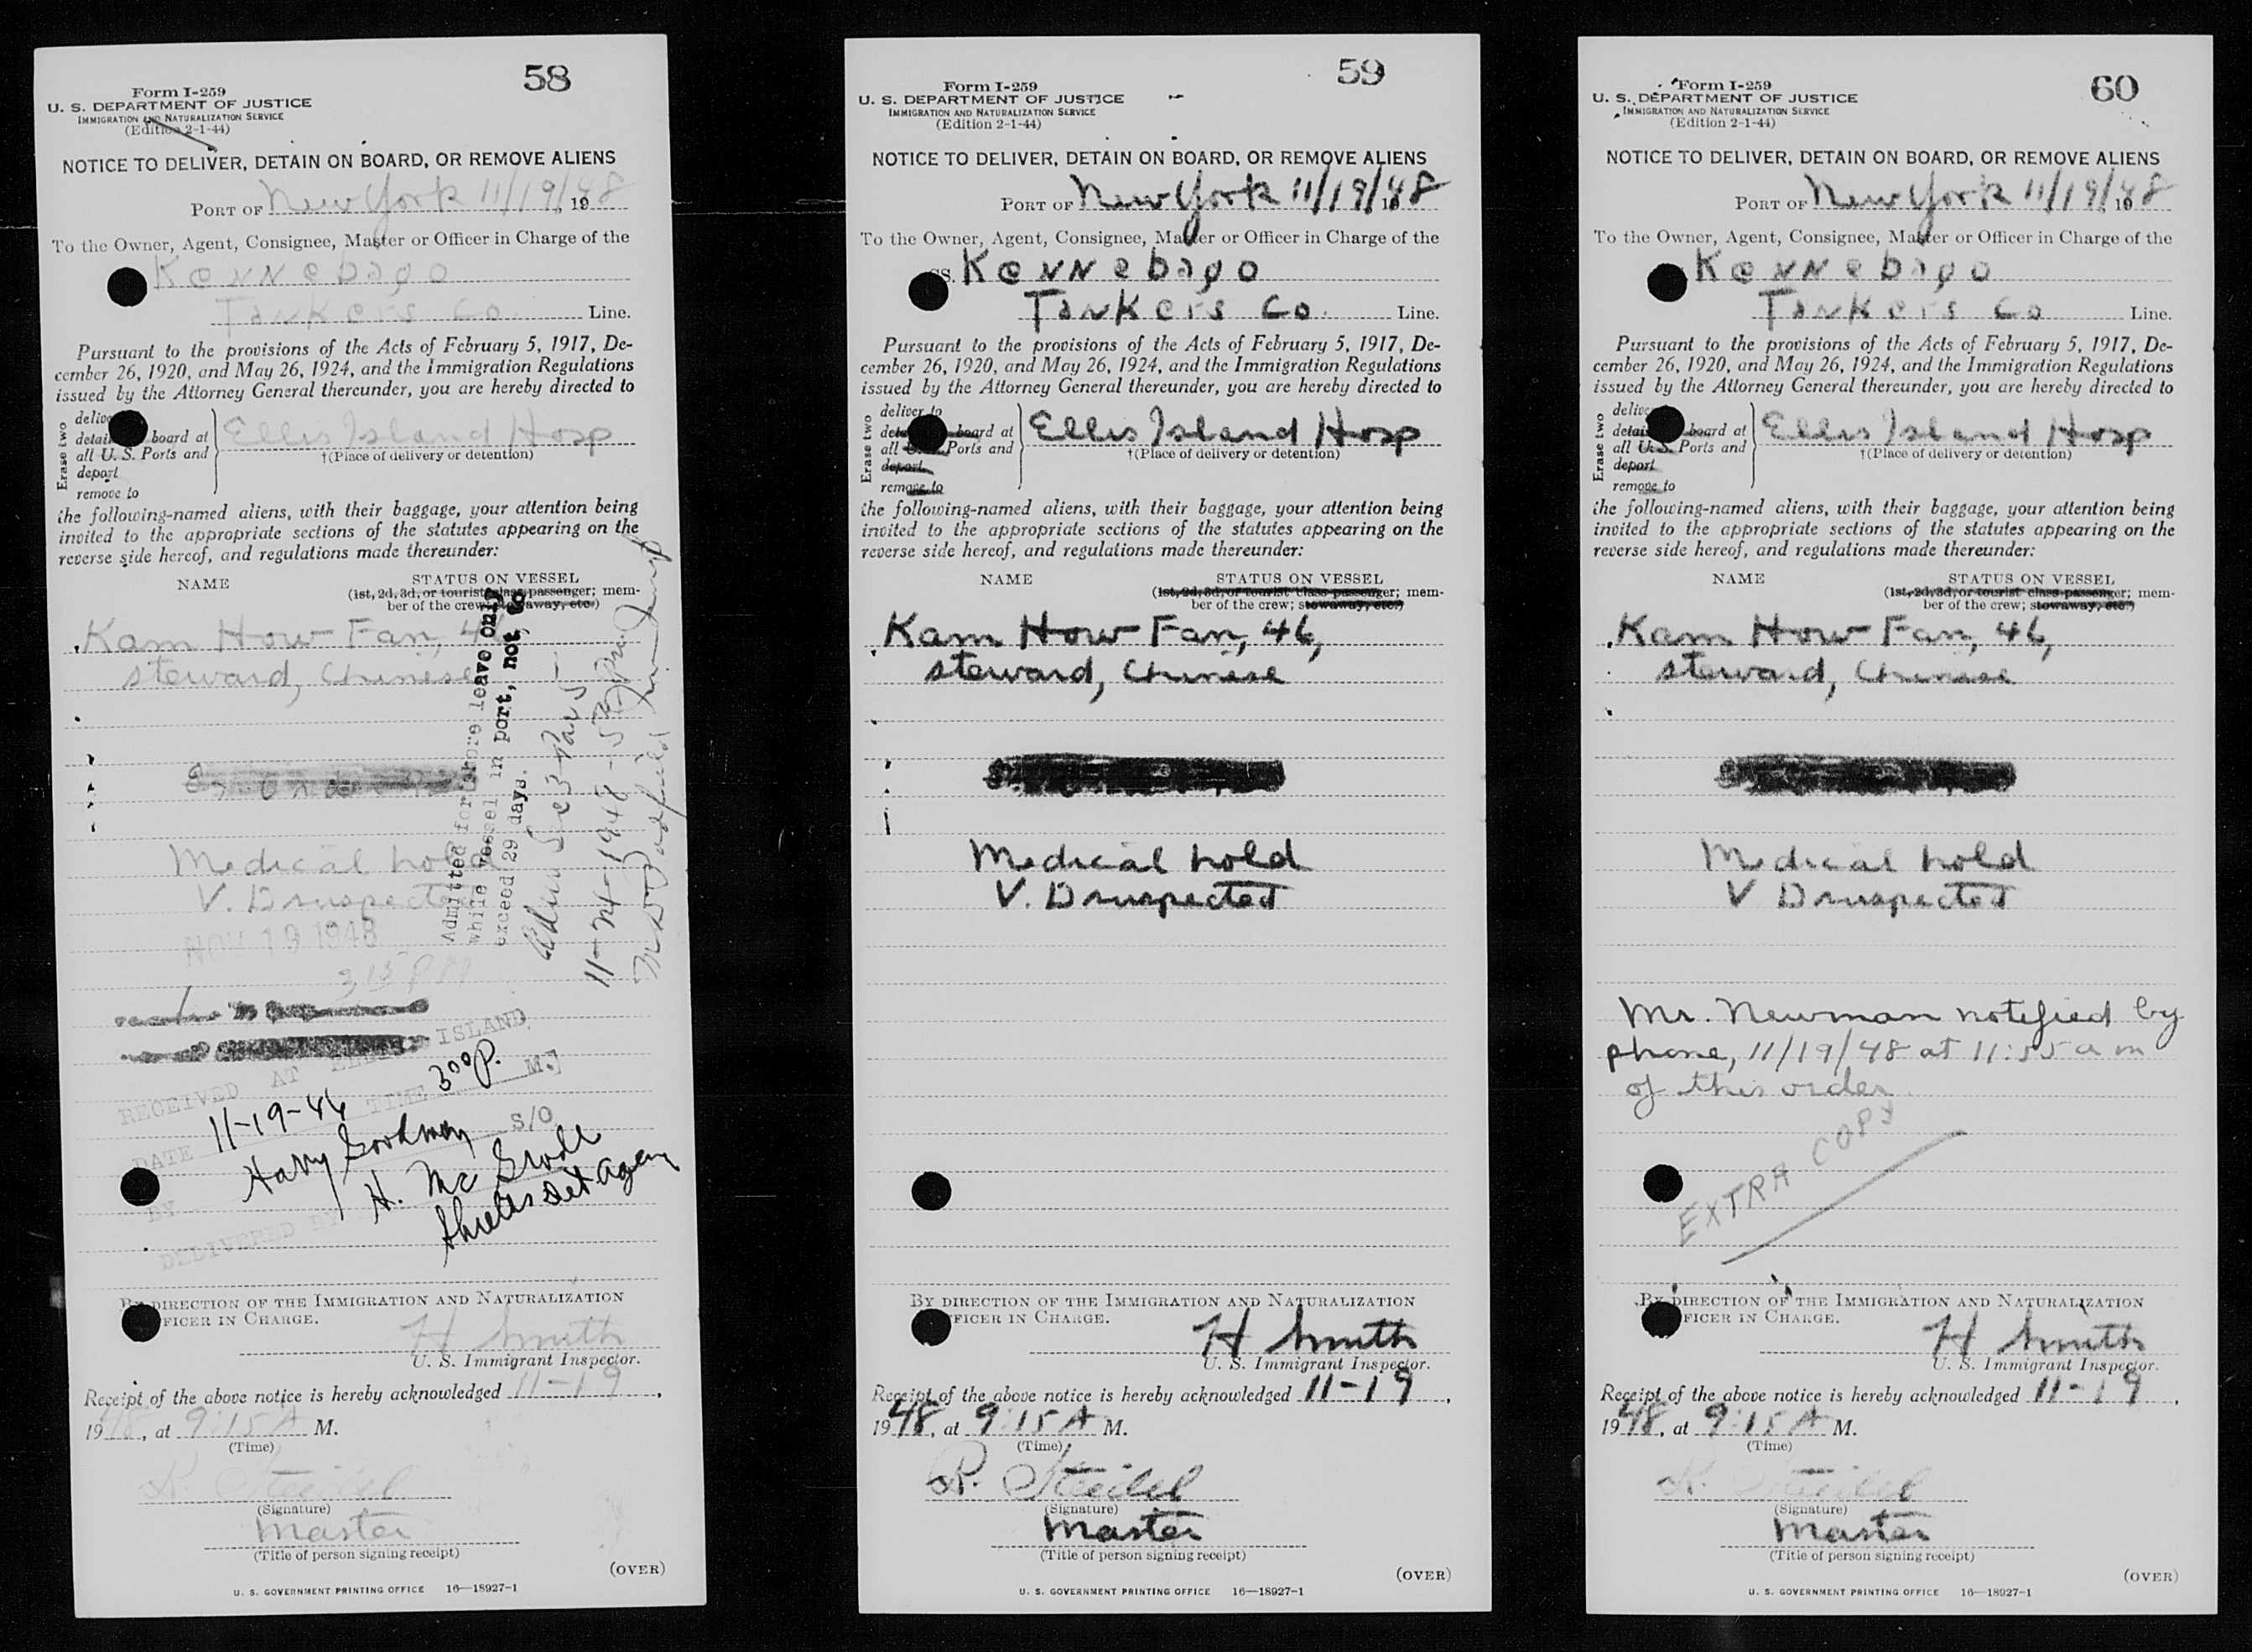 58
Form I-259
U. S. DEPARTMENT OF JUSTICE
IMMIGRATION AND NATURALIZATION SERVICE
(Edition 2-1-44)
NOTICE TO DELIVER, DETAIN ON BOARD, OR REMOVE ALIENS
PORT OF New York 11/19/, 1948
To the Owner, Agent, Consignee, Master or Officer in Charge of the
Kennebago
Tankers Co. Line.
Pursuant to the provisions of the Acts of February 5, 1917, De-
cember 26, 1920, and May 26, 1924, and the Immigration Regulations
issued by the Attorney General thereunder, you are hereby directed to
Erase two
deliver
detain board at
all U. S. Ports and
deport
remove to
Ellis Island Hosp
†(Place of delivery or detention)
the following-named aliens, with their baggage, your attention being
invited to the appropriate sections of the statutes appearing on the
reverse side hereof, and regulations made thereunder:
NAME
STATUS ON VESSEL
(1st, 2d, 3d, or tourist class passenger; mem-
ber of the crew; stowaway, etc.)
Kam How Fan, 46
steward, Chinese
Medical hold
V. D suspected
NOV 19 1948
3 15 PM
Admitted for shore leave only
while vessel in port, not to
exceed 29 days.
11-24-1948
RECEIVED AT ELLIS ISLAND
DATE 11-19-46 TIME 3 00 P. M.
BY Harry Goodman S/O
DELIVERED BY H. Mc Grode
BY DIRECTION OF THE IMMIGRATION AND NATURALIZATION
FICER IN CHARGE.
H Smith
U. S. Immigrant Inspector.
Receipt of the above notice is hereby acknowledged 11-19,
1948, at 9:15 A M.
(Time)
R. Steidel
(Signature)
Master
(Title of person signing receipt)
(OVER)
U. S. GOVERNMENT PRINTING OFFICE 16—18927-1
59
Form I-259
U. S. DEPARTMENT OF JUSTICE
IMMIGRATION AND NATURALIZATION SERVICE
(Edition 2-1-44)
NOTICE TO DELIVER, DETAIN ON BOARD, OR REMOVE ALIENS
PORT OF New York 11/19/, 1948
To the Owner, Agent, Consignee, Master or Officer in Charge of the
SS. Kennebago
Tankers Co. Line.
Pursuant to the provisions of the Acts of February 5, 1917, De-
cember 26, 1920, and May 26, 1924, and the Immigration Regulations
issued by the Attorney General thereunder, you are hereby directed to
Erase two
deliver to
detain board at
all U. S. Ports and
deport
remove to
Ellis Island Hosp
†(Place of delivery or detention)
the following-named aliens, with their baggage, your attention being
invited to the appropriate sections of the statutes appearing on the
reverse side hereof, and regulations made thereunder:
NAME
STATUS ON VESSEL
(1st, 2d, 3d, or tourist class passenger; mem-
ber of the crew; stowaway, etc.)
Kam How Fan, 46,
steward, Chinese
Medical hold
V. D suspected
BY DIRECTION OF THE IMMIGRATION AND NATURALIZATION
FICER IN CHARGE.
H Smith
U. S. Immigrant Inspector.
Receipt of the above notice is hereby acknowledged 11-19,
1948, at 9:15 A M.
(Time)
R. Steidel
(Signature)
Master
(Title of person signing receipt)
(OVER)
U. S. GOVERNMENT PRINTING OFFICE 16—18927-1
60
Form I-259
U. S. DEPARTMENT OF JUSTICE
IMMIGRATION AND NATURALIZATION SERVICE
(Edition 2-1-44)
NOTICE TO DELIVER, DETAIN ON BOARD, OR REMOVE ALIENS
PORT OF New York 11/19/, 1948
To the Owner, Agent, Consignee, Master or Officer in Charge of the
Kennebago
Tankers Co Line.
Pursuant to the provisions of the Acts of February 5, 1917, De-
cember 26, 1920, and May 26, 1924, and the Immigration Regulations
issued by the Attorney General thereunder, you are hereby directed to
Erase two
deliver
detain board at
all U. S. Ports and
deport
remove to
Ellis Island Hosp
†(Place of delivery or detention)
the following-named aliens, with their baggage, your attention being
invited to the appropriate sections of the statutes appearing on the
reverse side hereof, and regulations made thereunder:
NAME
STATUS ON VESSEL
(1st, 2d, 3d, or tourist class passenger; mem-
ber of the crew; stowaway, etc.)
Kam How Fan, 46,
steward, Chinese
Medical hold
V D suspected
Mr. Newman notified by
phone, 11/19/48 at 11:55 a m
of this order.
EXTRA COPY
BY DIRECTION OF THE IMMIGRATION AND NATURALIZATION
FICER IN CHARGE.
H Smith
U. S. Immigrant Inspector.
Receipt of the above notice is hereby acknowledged 11-19,
1948, at 9:15 A M.
(Time)
R. Steidel
(Signature)
Master
(Title of person signing receipt)
(OVER)
U. S. GOVERNMENT PRINTING OFFICE 16—18927-1